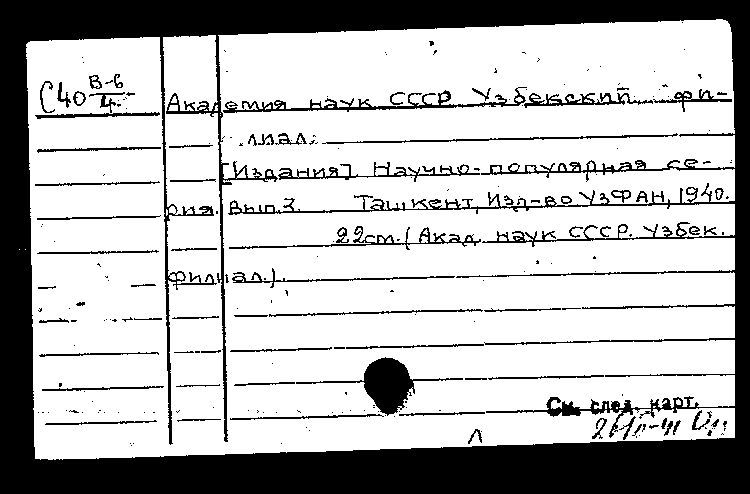 С40 В-6/4.
Академия наук СССР Узбекский фи-
лиал.
[Издания] Научно-популярная се-
рия. Вып.3. Ташкент, Изд-во УзФАН, 1940.
22см. (Акад. наук СССР. Узбек.
филиал.).
См. след. карт.